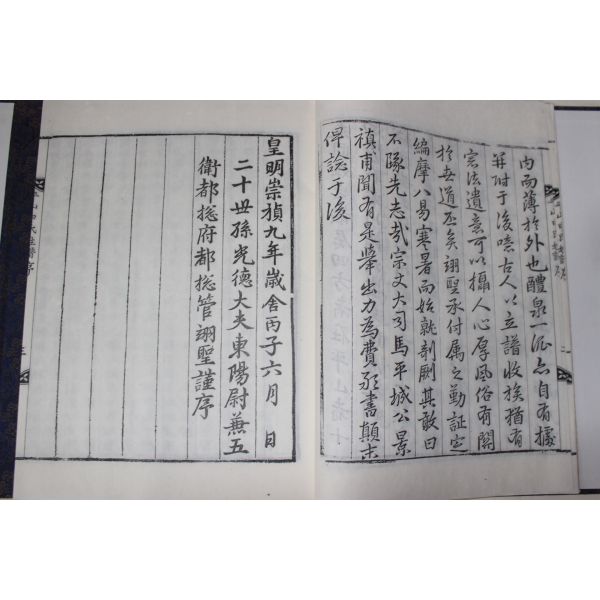 內而薄於外也醴泉一派亦自有據
幷附于後噫古人以立譜收族猶有
宗法遺意可以攝人心厚風俗有關
於世道丕矣翊聖承付属之勤証定
編摩八易寒暑而始就剞劂其敢曰
不隊先志哉宗丈大司馬平城公景
禛甫聞有是舉出力為費既書顛末
俾諗于後
皇明崇禎九年歲舍丙子六月 日
二十世孫光德大夫東陽尉兼五
衛都捴府都捴管翊聖謹序